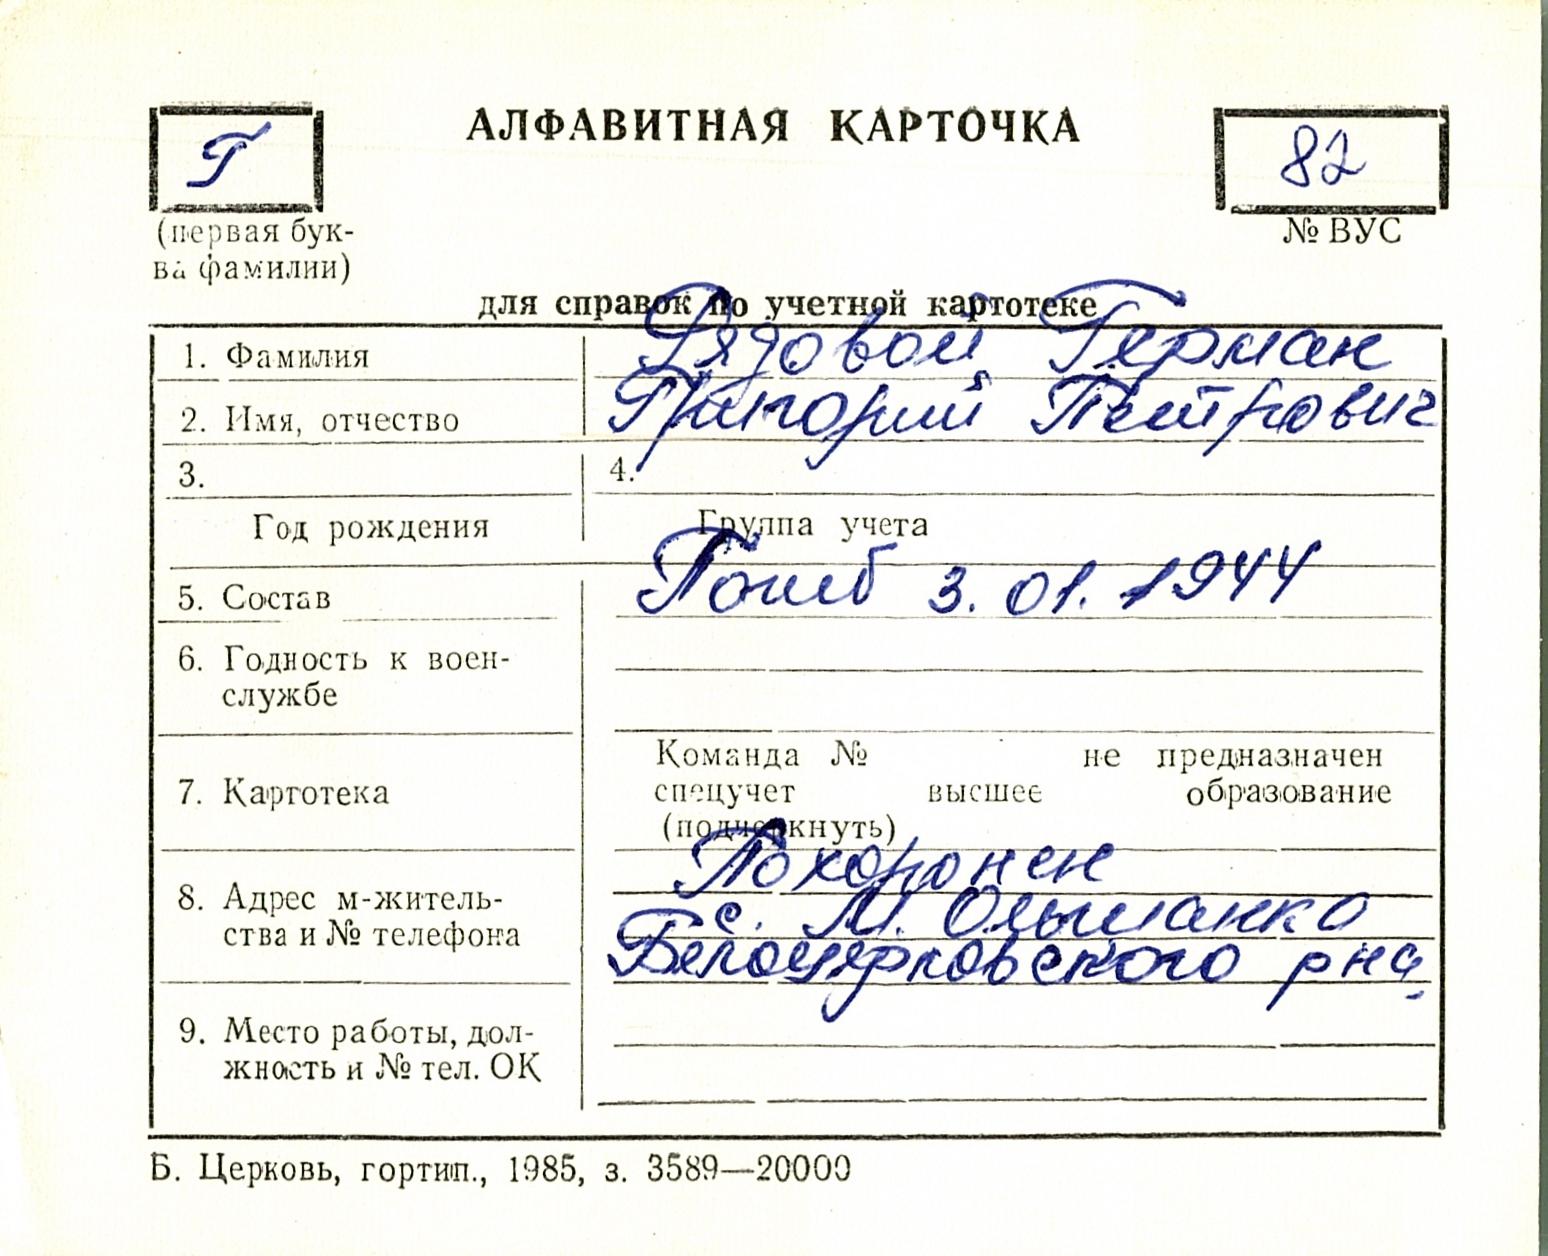 Г
АЛФАВИТНАЯ КАРТОЧКА
82
(первая бук-
ва фамилии)
№ ВУС
для справок по учетной картотеке
1. Фамилия Рядовой Герман
2. Имя, отчество Григорий Петрович
3. 4.
Год рождения Группа учета
5. Состав Погиб 3.01.1944
6. Годность к воен-
службе
Команда № не предназначен
7. Картотека спецучет высшее образование
(подчеркнуть)
Похоронен
8. Адрес м-житель- с. М. Ольшанка
ства и № телефона Белоцерковского р-на
9. Место работы, дол-
жность и № тел. ОК
Б. Церковь, гортип., 1985, з. 3589—20000